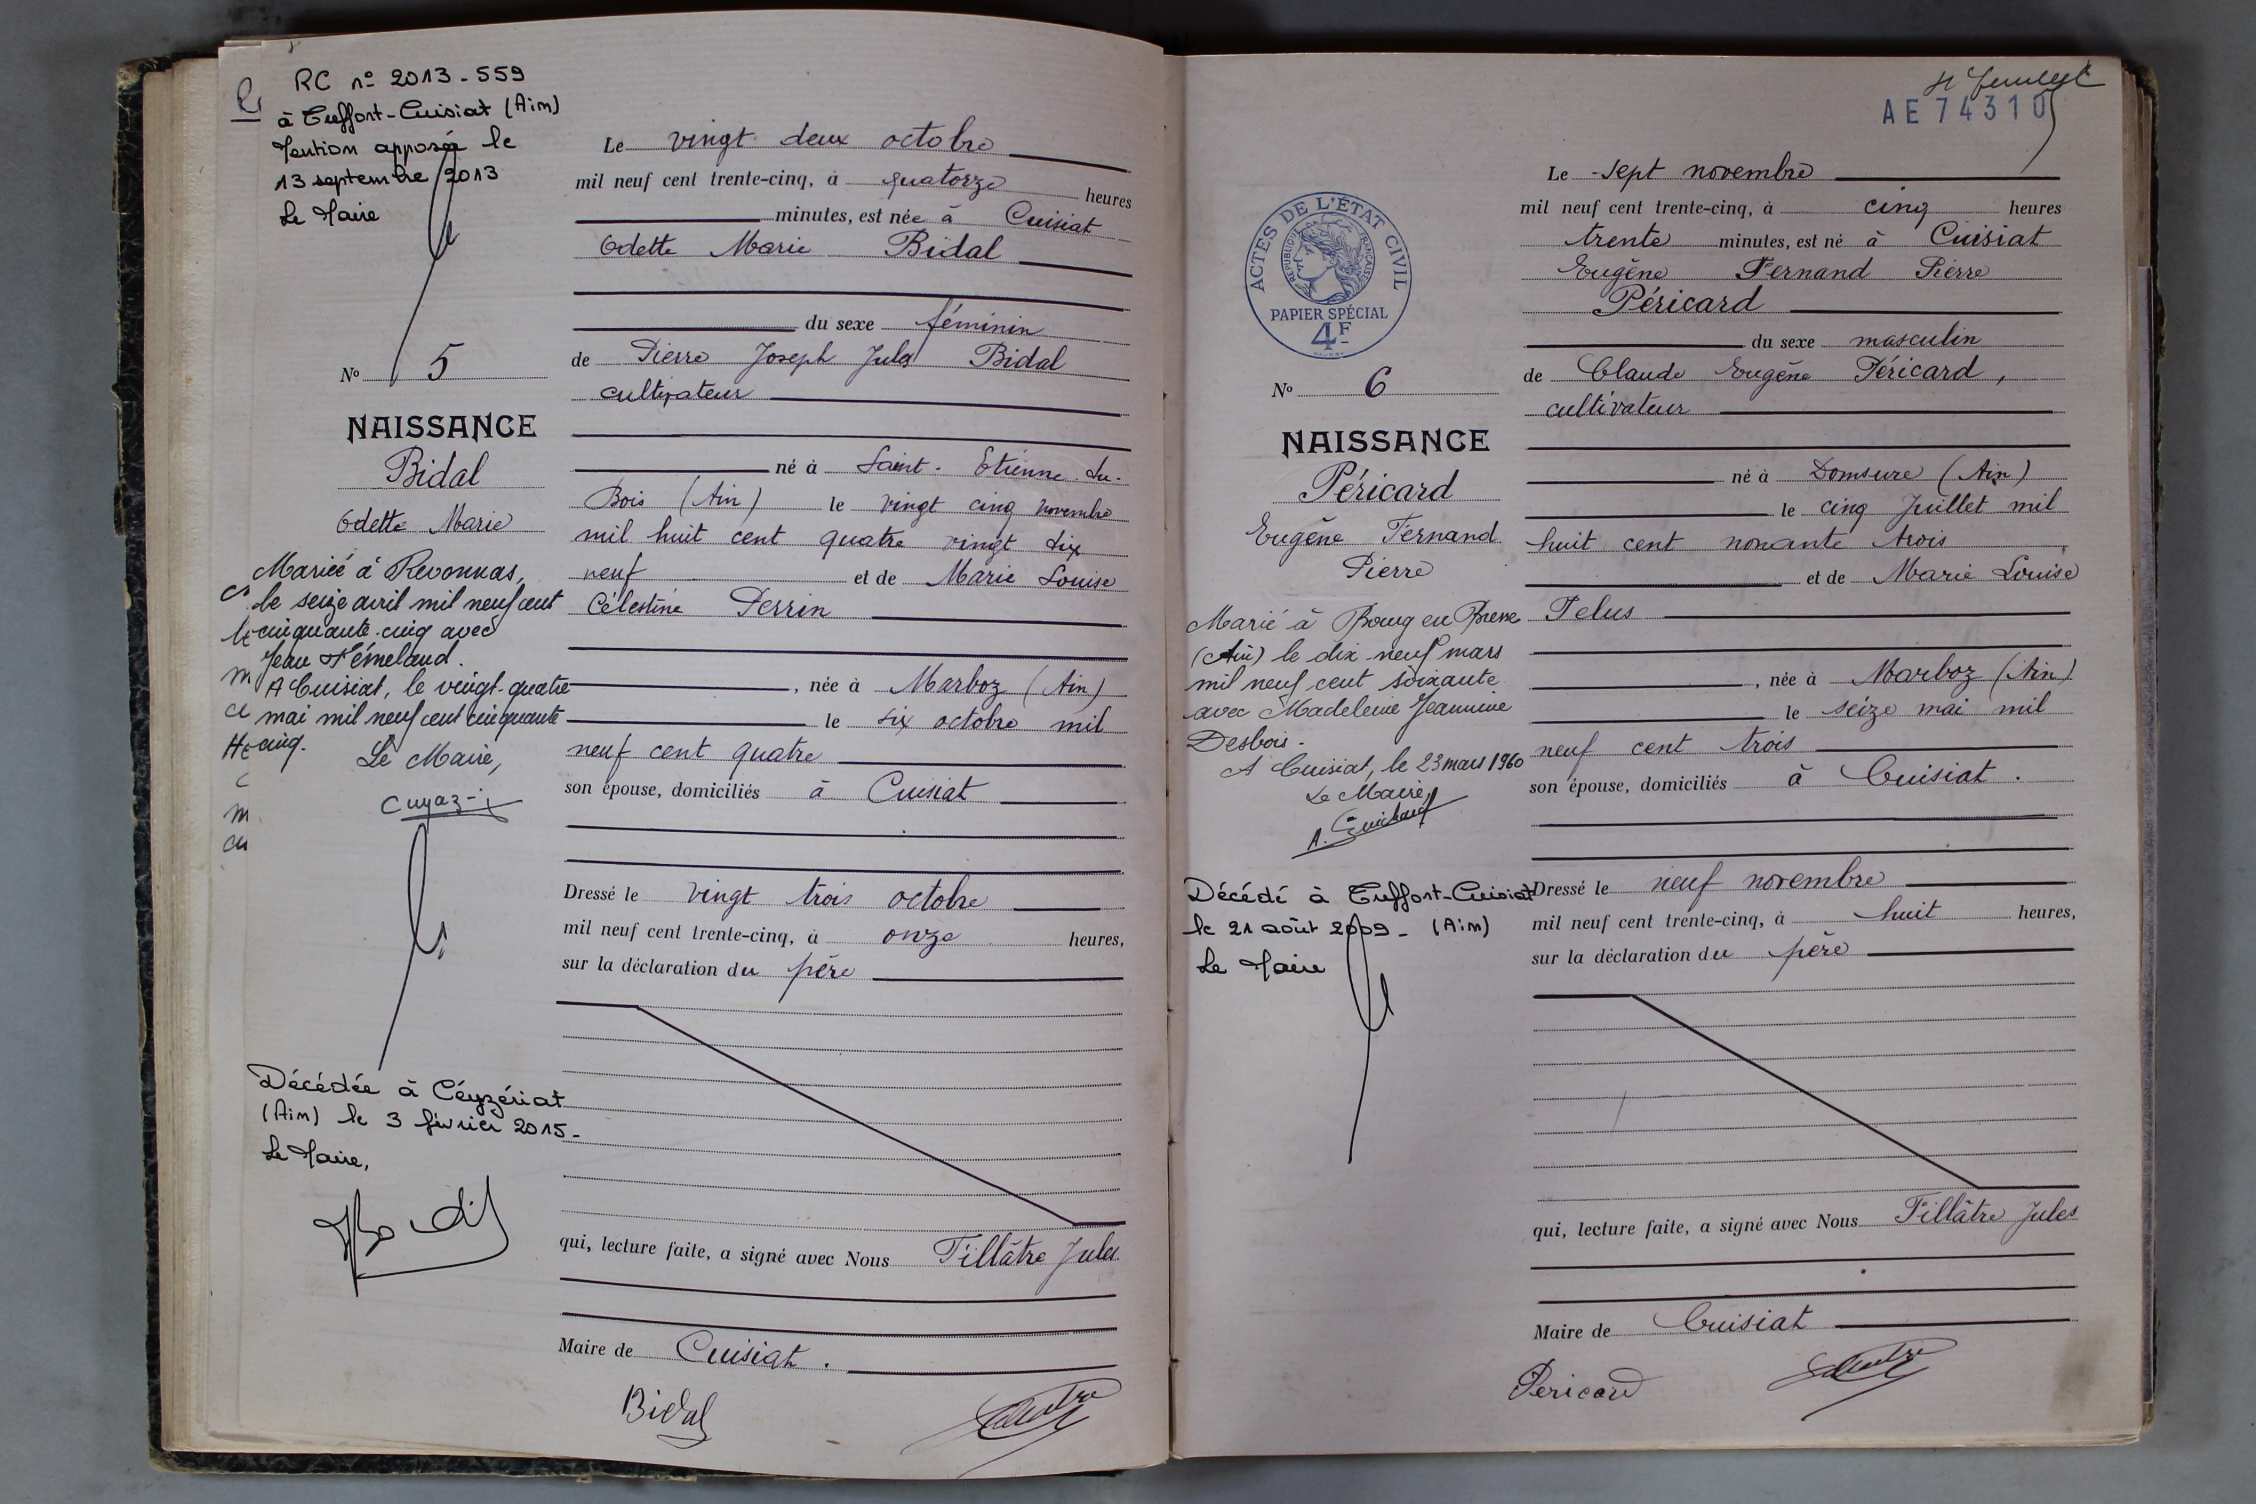 RC nº 2013-559
à Treffort-Cuisiat (Ain)
Mention apposée le
13 septembre 2013
Le Maire
Nº 5
NAISSANCE
Bidal
Odette Marie
Mariée à Revonnas,
le seize avril mil neuf cent
cinquante-cinq avec
Jean
A Cuisiat, le vingt-quatre
mai mil neuf cent cinquante
cinq.
Le Maire,
Cuyaz
Décédée à Céyzériat
(Ain) le 3 février 2015-
Le Maire,
Le vingt deux octobre
mil neuf cent trente-cinq, à quatorze heures
minutes, est née à Cuisiat
Odette Marie Bidal
du sexe féminin
de Pierre Joseph Jules Bidal
cultivateur
né à Saint-Etienne-du-
Bois (Ain) le vingt cinq novembre
mil huit cent quatre vingt dix
neuf et de Marie Louise
Célestine Perrin
, née à Marboz (Ain)
le six octobre mil
neuf cent quatre
son épouse, domiciliés à Cuisiat
Dressé le vingt trois octobre
mil neuf cent trente-cinq, à onze heures,
sur la déclaration du père
qui, lecture faite, a signé avec Nous Fillâtre Jules
Maire de Cuisiat.
Bidal
Fillatre
AE 74310
ACTES DE L'ÉTAT CIVIL
RÉPUBLIQUE FRANÇAISE
PAPIER SPÉCIAL
4F
Nº 6
NAISSANCE
Péricard
Eugène Fernand
Pierre
Marié à Bourg en Bresse
(Ain) le dix neuf mars
mil neuf cent soixante
avec Madeleine Jeannine
Desbois.
A Cuisiat, le 23 mars 1960
Le Maire,
Décédé à Treffort-Cuisiat
le 21 août 2009- (Ain)
Le Maire
Le sept novembre
mil neuf cent trente-cinq, à cinq heures
trente minutes, est né à Cuisiat
Eugène Fernand Pierre
Péricard
du sexe masculin
de Claude Eugène Péricard,
cultivateur
né à Domsure (Ain)
le cinq Juillet mil
huit cent nonante trois
et de Marie Louise
Pelus
, née à Marboz (Ain)
le seize mai mil
neuf cent trois
son épouse, domiciliés à Cuisiat.
Dressé le neuf novembre
mil neuf cent trente-cinq, à huit heures,
sur la déclaration du père
qui, lecture faite, a signé avec Nous Fillâtre Jules
Maire de Cuisiat
Pericard
Fillatre